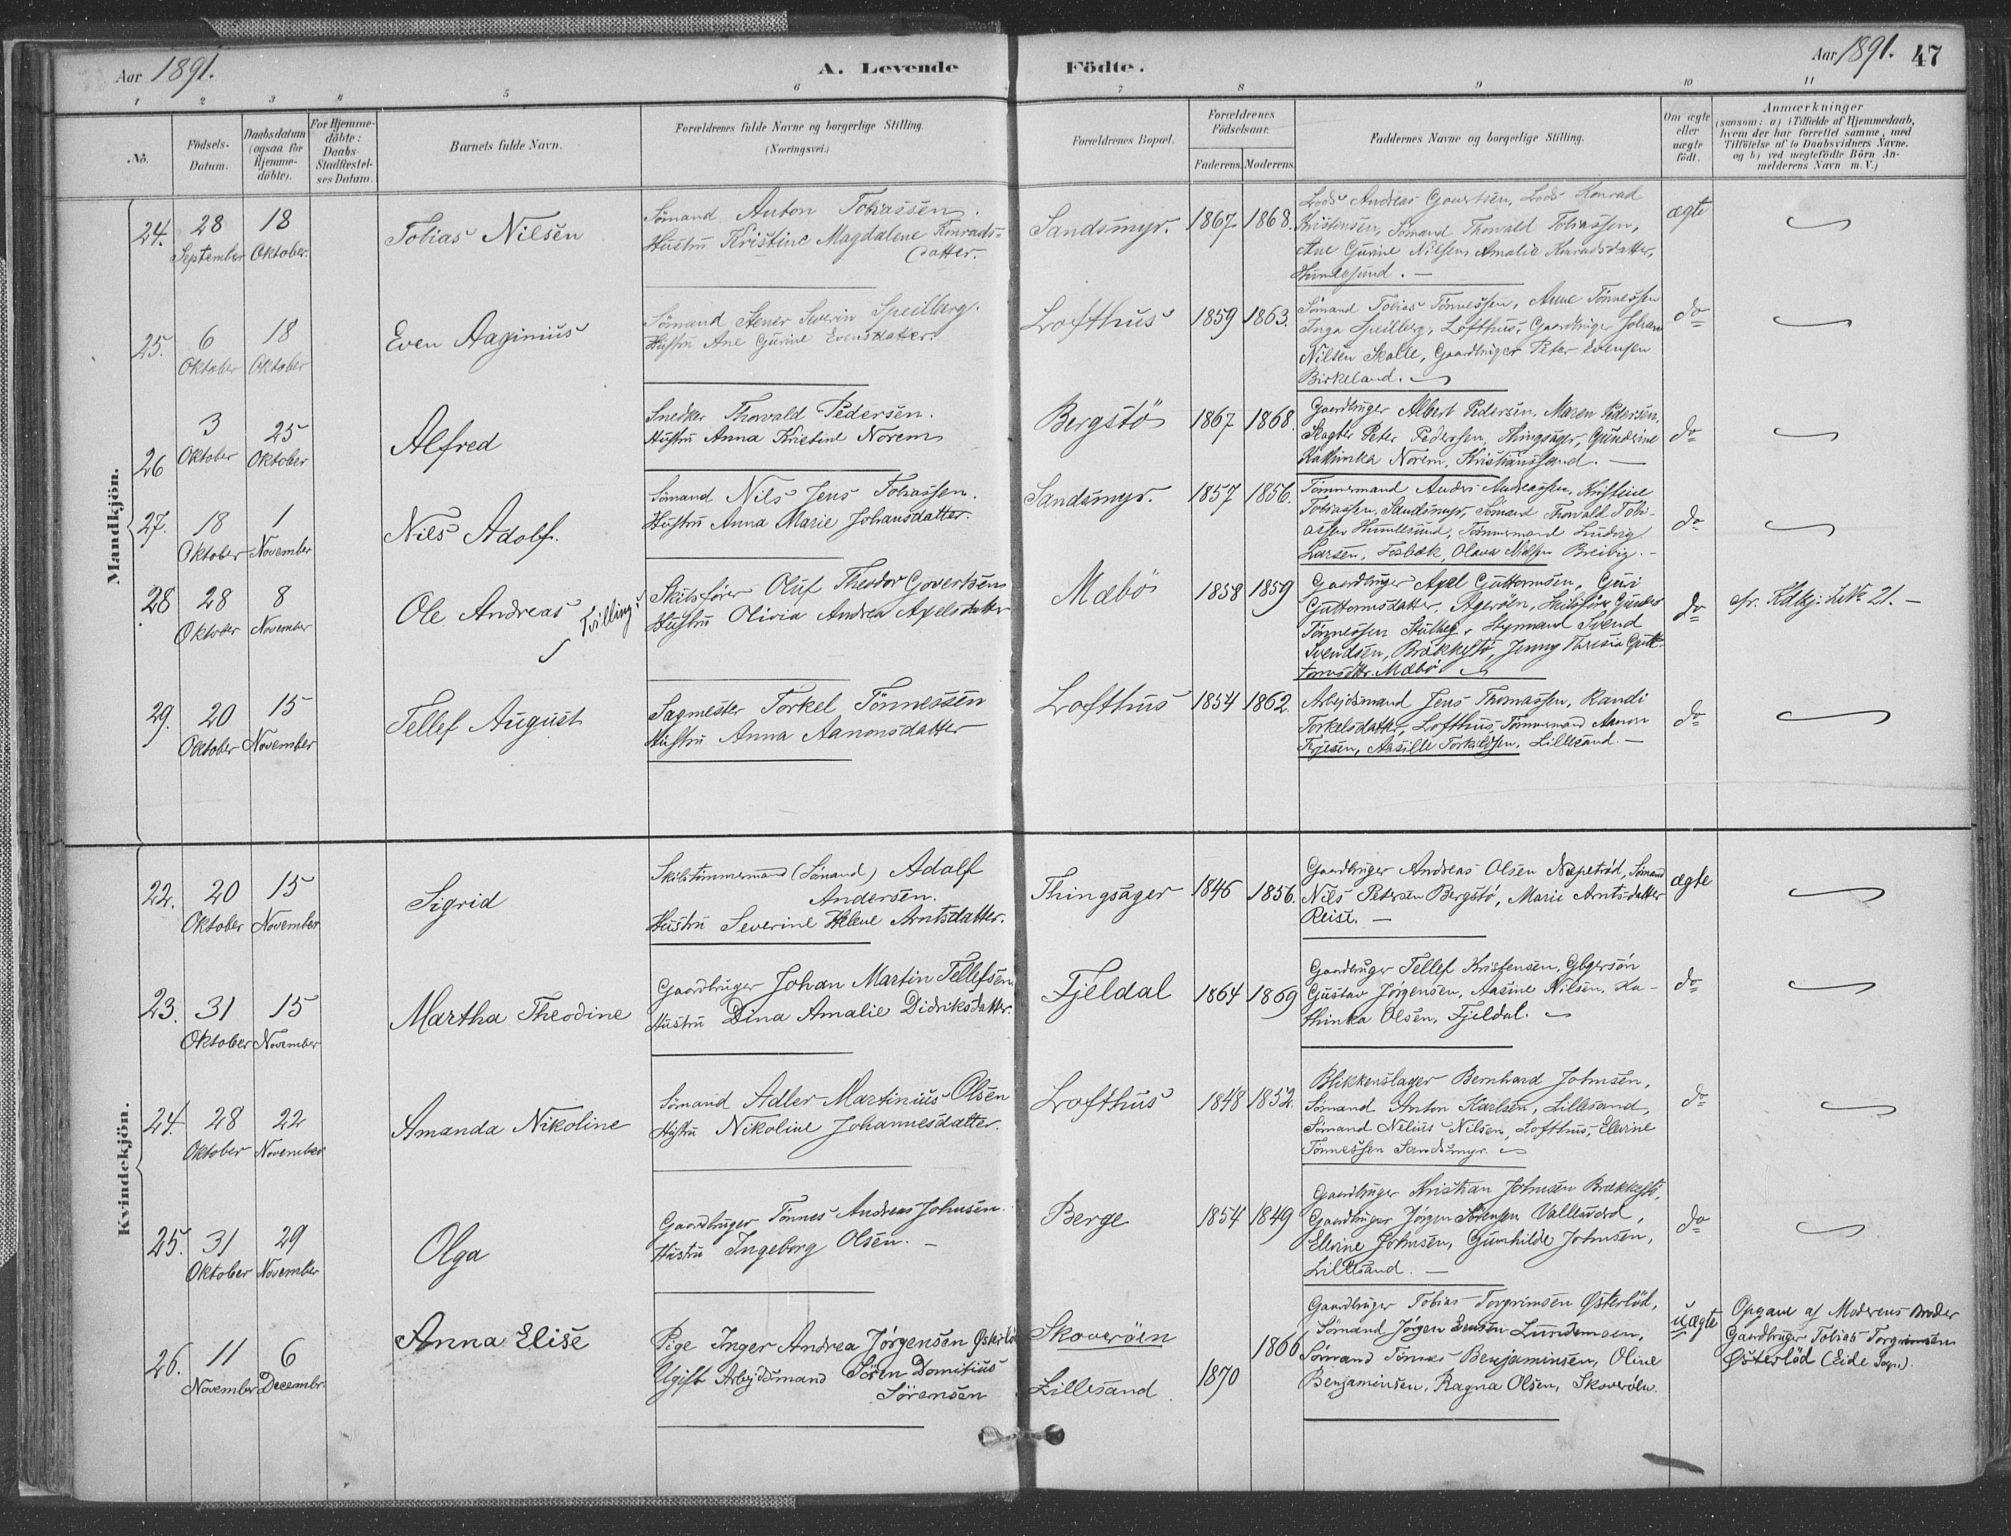 Aar 1891.
A. Levende Födte.
Aar 1891. 47
1 2 3 4 5 6 7 8 9 10 11
No.
Födsels-
Datum.
Daabsdatum
(ogsaa for
Hjemme-
döbte).
For Hjemme-
döbte:
Daabs-
Stadfæstel-
ses Datum.
Barnets fulde Navn.
Forældrenes fulde Navne og borgerlige Stilling.
(Næringsvei.)
Forældrenes Bopæl.
Forældrenes
Födselsaar.
Faderens. Moderens.
Faddernes Navne og borgerlige Stilling.
Om ægte
eller
uægte
født.
Anmærkninger
(saasom: a) i Tilfælde af Hjemmedaab,
hvem der har forrettet samme, med
Tilföielse af to Daabsvidners Navne.
og b) ved uægtefödte Börn An-
melderens Navn m. V.)
Mandkjön.
24. 28 September 18 Oktober.
Tobias Nilsen
Sömand Anton Tobiassen.
Hustru Kristine Magdalene Konrads-
datter.
Sandsmyr. 1867 1868.
Lods Andreas Govertsen, Lods Konrad
Kristensen, Sömand Thorvald Tobiassen,
Ane Gurine Nilsen, Amalie Konradsdatter,
Humlesund. —
ægte
25. 6 Oktober 18 Oktober
Even Aaginius
Sömand Stener Severin Speilberg.
Hustru Ane Gurine Evensdatter.
Lofthus 1859 1863.
Sömand Tobias Tönnessen, Anne Tönnessen
Inga Speilberg, Lofthus, Gaardbruger Johan
Nilsen Skalle, Gaardbruger Peter Evensen
Birkeland.
do
26 3 Oktober 25 Oktober
Alfred
Snedker Thorvald Pedersen.
Hustru Anna Kristine Norem
Bergstö 1867 1868.
Gaardbruger Albert Pedersen, Maren Pedersen,
Slagter Peter Pedersen, Thingsager, Gunderine
Kathinka Norem, Kristianssand. —
do
27. 18 Oktober 1 November
Nils Adolf.
Sömand Nils Jens Tobiassen.
Hustru Anna Marie Johansdatter.
Sandsmyr. 1857 1856.
Tömmermand Anders Andreassen, Kristine
Tobiassen, Sandsmyr, Sömand Thorvald Tobi-
assen Humlesund, Tömmermand Ludvig
Larsen, Fosbæk, Olava Nilsen Breivig. —
do
28. 28 Oktober 8 November
Ole Andreas Tvilling
Skibsförer Oluf Theodor Govertsen
Hustru Olivia Andrea Axelsdatter
Mæbö 1858 1859
Gaardbruger Axel Guttormsen, Guri
Guttormsdatter, Agerøen, Skibsförer Gunder
Tönnessen, Styrmand Svend
Svendsen, Brækkestö, Jenny Theresia Gutt-
ormsdtr. Mæbö
do
cfr. Kdkj: L. No 21. —
29. 20 Oktober 15 November
Tellef August
Sagmester Torkel Tönnessen
Hustru Anna Aanonsdatter
Lofthus 1854 1862.
Arbejdsmand Jens Thomassen, Randi
Torkelsdatter, Lofthus, Tömmermand Aanon
Terjesen, Aasille Torkildsen, Lillesand. —
do
Kvindekjön.
22. 20 Oktober 15 November
Sigrid
Skibstømmermand (Sömand) Adolf
Andersen.
Hustru Severine Helene Arntsdatter.
Thingsager 1846 1856.
Gaardbruger Andreas Olsen Næpetröd, Sömand
Nils Petersen Bergstö, Marie Arntsdatter
Reise. —
ægte
23. 31 Oktober 15 November
Martha Theodine
Gaardbruger Johan Martin Tellefsen
Hustru Dina Amalie Didriksdatter.
Fjeldal 1864 1869
Gaardbruger Tellef Kristensen, Glgersön
Gustav Jørgensen, Aasine Nilsen, Ka-
thinka Olsen, Fjeldal.
do
24. 28 Oktober 22 November
Amanda Nikoline
Sömand Adler Martinius Olsen
Hustru Nikoline Johannesdatter.
Lofthus 1848 1852.
Blikkenslager Bernhard Johnsen,
Sömand Anton Karlsen, Lillesand,
Sömand Nilius Nilsen, Lofthus, Elevine
Tønnessen Sandsmyr.
do
25. 31 Oktober 29 November
Olga
Gaardbruger Tönnes Andreas Johnsen.
Hustru Ingeborg Olsen. —
Berge 1854 1849
Gaardbruger Kristian Johnsen Brækkestö,
Gaardbruger Jörgen Sörensen Vallesverd,
Ellevine Johnsen, Gunhilde Johnsen,
Lillesand. —
do
26. 11 November 6 Decembr.
Anna Elise
Pige Inger Andrea Jörgensen Østerlö
Ugift Arbejdsmand Sören Domitius
Sörensen
Skoveröen
Lillesand 1870 1866
Gaardbruger Tobias Torgrimsen Østerlöd,
Sömand Jörgen Evensen Lundemoen,
Sömand Tönnes Benjaminsen, Oline
Benjaminsen, Ragna Olsen, Skoveröen.
uægte
Opgave af Moderens Broder
Gaardbruger Tobias Torgrimsen
Østerlöd (Eide Sogn).